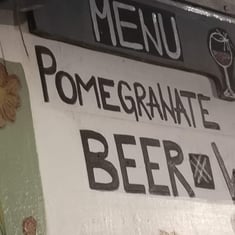 MENU
POMEGRANATE
BEER